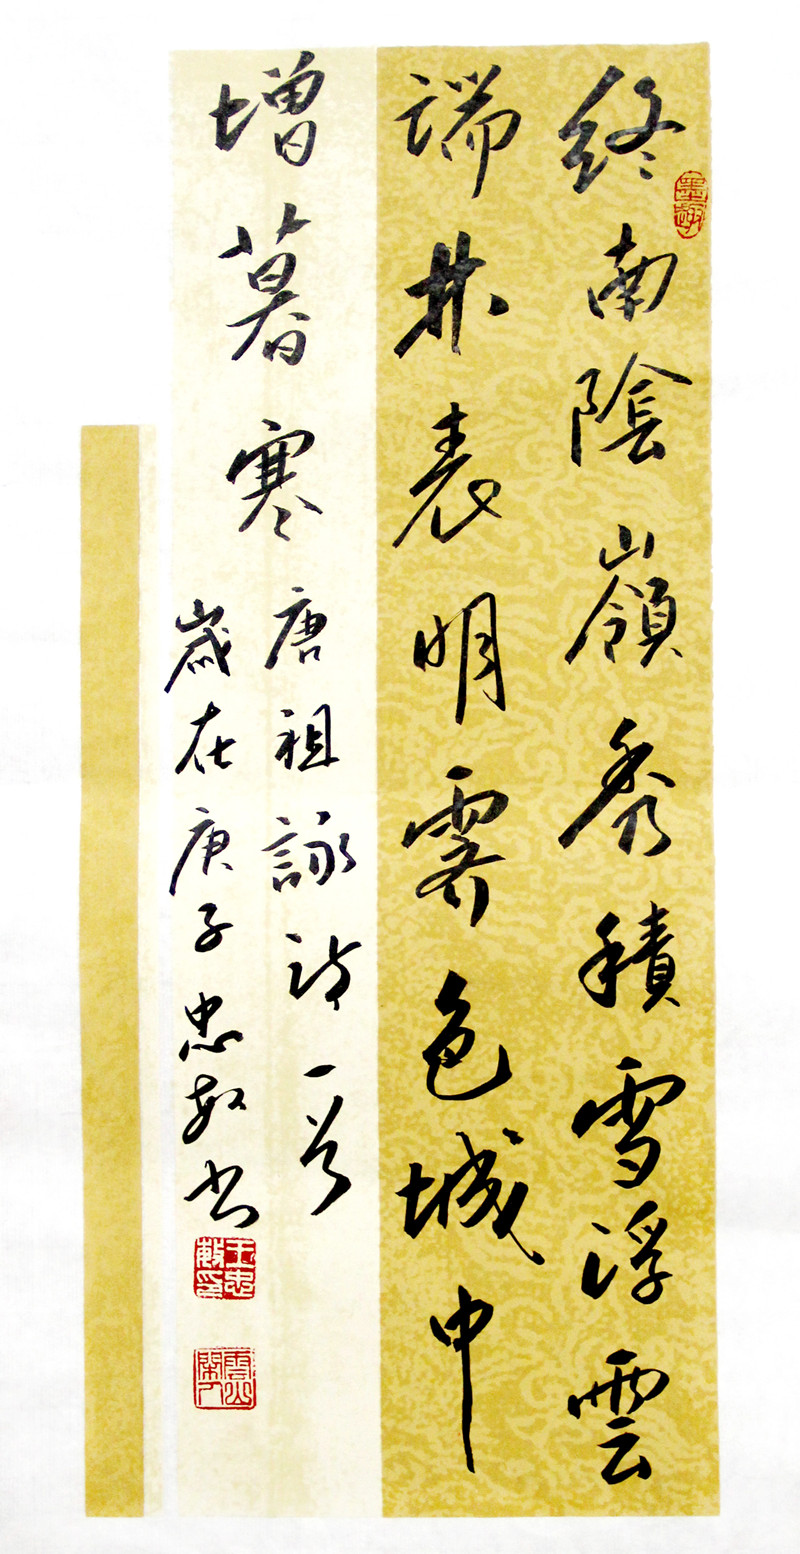 終南陰嶺秀積雪浮雲
端林表明霽色城中
增暮寒唐祖詠詩一首
歲在庚子忠敏書
王忠敏印